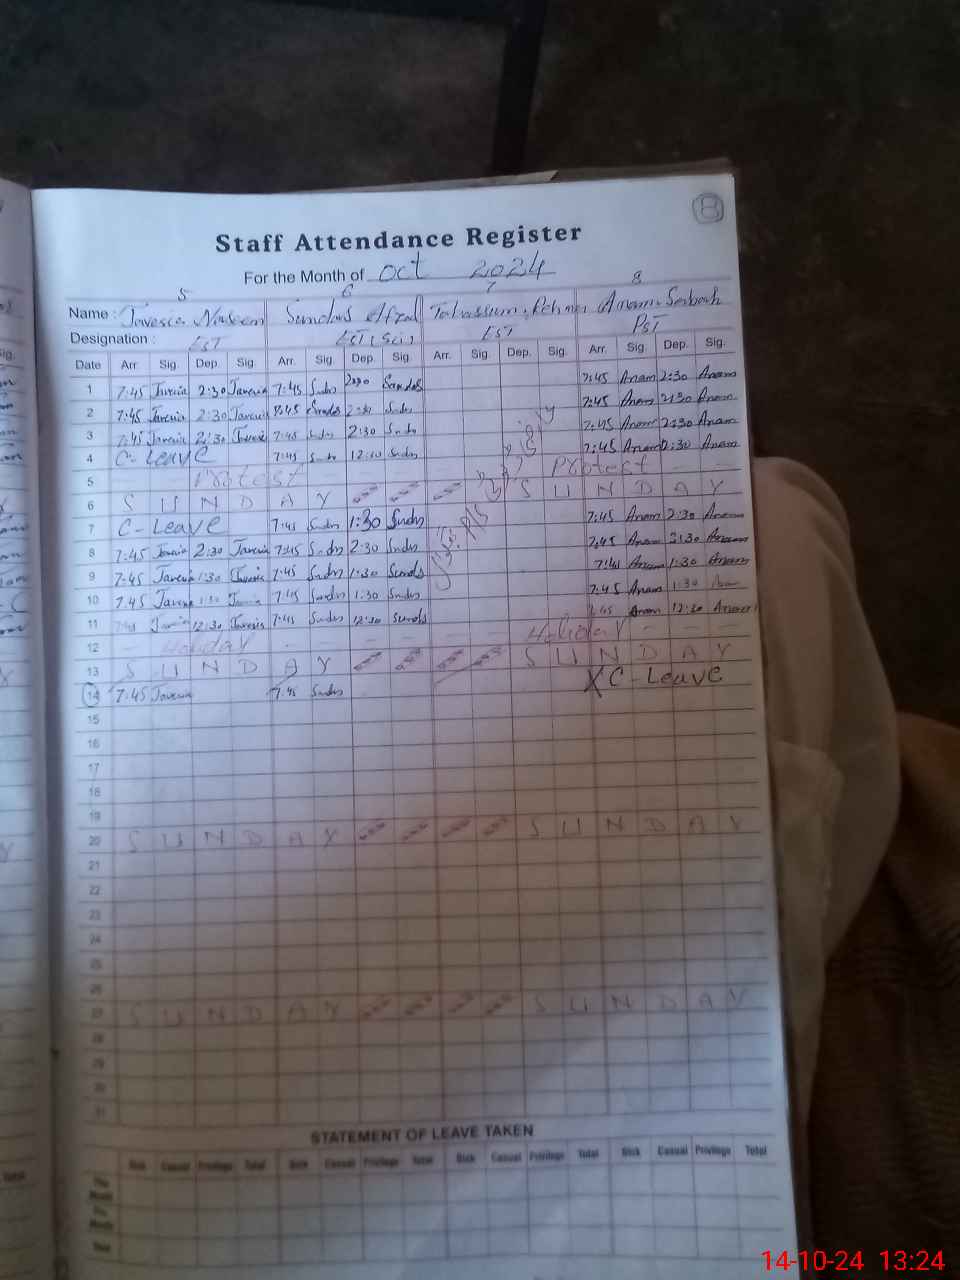 8
Staff Attendance Register
For the Month of Oct 2024
5 6 7 8
Name : Javeria Naseem Sundas Afzal Tabassum Rehman Anam
Designation : EST EST (Sci) EST PST
Date Arr. Sig. Dep. Sig. Arr. Sig. Dep. Sig. Arr. Sig. Dep. Sig. Arr. Sig. Dep. Sig.
1 7:45 Javeria 2:30 Javeria 7:45 Sundas 2:30 Sundas 7:45 Anam 2:30 Anam
2 7:45 Javeria 2:30 Javeria 7:45 Sundas 2:30 Sundas 7:45 Anam 2:30 Anam
3 7:45 Javeria 2:30 Javeria 7:45 Sundas 2:30 Sundas 7:45 Anam 2:30 Anam
4 C-Leave 7:45 Sundas 12:10 Sundas 7:45 Anam 2:30 Anam
5 Protest Protest
6 SUNDAY SUNDAY
7 C-Leave 7:45 Sundas 1:30 Sundas 7:45 Anam 2:30 Anam
8 7:45 Javeria 2:30 Javeria 7:45 Sundas 2:30 Sundas 7:45 Anam 2:30 Anam
9 7:45 Javeria 1:30 Javeria 7:45 Sundas 1:30 Sundas 7:45 Anam 1:30 Anam
10 7:45 Javeria 1:30 Javeria 7:45 Sundas 1:30 Sundas 7:45 Anam 1:30 Anam
11 7:45 Javeria 12:30 Javeria 7:45 Sundas 12:30 Sundas 7:45 Anam 12:30 Anam
12 Holiday Holiday
13 SUNDAY SUNDAY
14 7:45 Javeria 7:45 Sundas X C-Leave
15
16
17
18
19
20 SUNDAY SUNDAY
21
22
23
24
25
26
27 SUNDAY SUNDAY
28
29
30
31
STATEMENT OF LEAVE TAKEN
Sick Casual Privilege Total Sick Casual Privilege Total Sick Casual Privilege Total Sick Casual Privilege Total
This Month
Pre. Month
Total
14-10-24 13:24